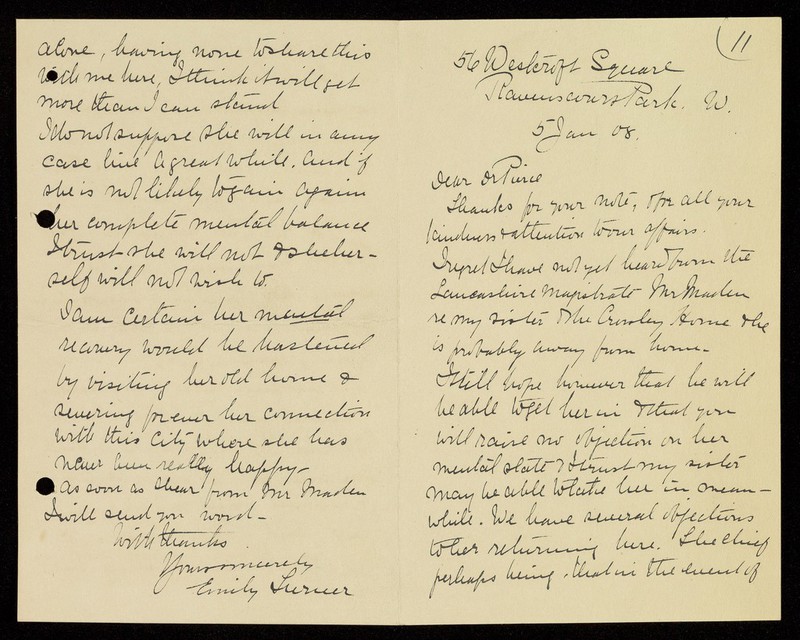 11
56 Westcroft Square
Ravenscourt Park. W.
5 Jan 08.
Dear Dr Pierce
Thanks for your note, & for all your
kindness & attention to our affairs.
I regret I have not yet heard from the
Lancashire Magistrate Mr Maden
re my sister & the Crossley Home & he
is probably away from home –
I still hope however that he will
be able to get her in & that you
will raise no objection on her
mental state & I trust my sister
may be able to take her in mean-
while. We have several objections
to her returning here. The chief
perhaps being, that in the event of
alone, having none to share this
with me here, I think it will get
more than I can stand
I do not suppose she will in any
case live a great while. And if
she is not likely to gain again
her complete mental balance
I trust she will not & she her-
self will not wish to.
I am certain her mental
recovery would be hastened
by visiting her old home &
severing for ever her connection
with this city where she has
never been really happy –
As soon as I hear from Mr Maden
I will send you word –
With thanks
Yours sincerely
Emily Turner